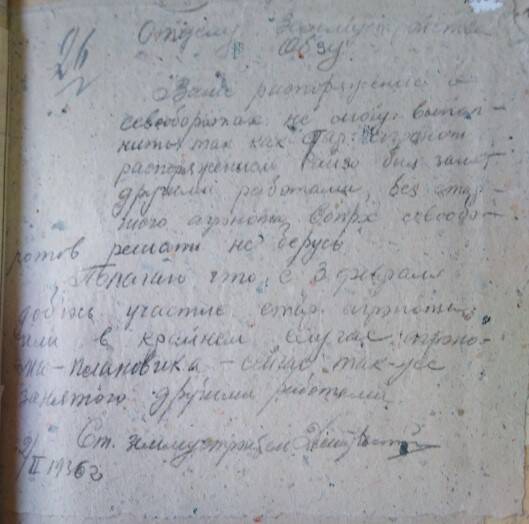 26
Отделу Землеустройства
Обзу
Ваше распоряжение о
севооборотах не могу выпол-
нить так как стар. агроном
распоряжением Райзо был занят
другими работами, без стар-
шего агронома вопрос севообо-
ротов решать не берусь
Полагаю что с 3 февраля
добьюсь участие стар агронома
или в крайнем случае агроно-
ма-плановика - сейчас так-же
занятого другими работами
Ст. землеустроитель
2/II 1936 г